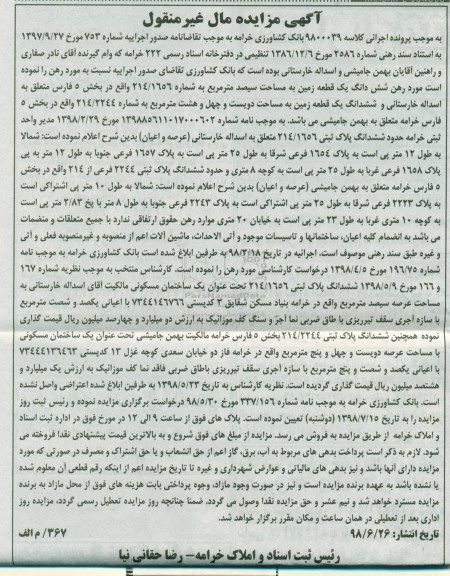 آگهی مزایده مال غیرمنقول
به موجب پرونده اجرائی کلاسه ۹۸۰۰۰۳۹ بانک کشاورزی خرامه به موجب تقاضانامه صدور اجراییه شماره ۷۵۳ مورخ ۱۳۹۷/۹/۲۷
به استناد سند رهنی شماره ۲۵۸۶ مورخ ۱۳۸۶/۱۲/۶ تنظیمی در دفترخانه اسناد رسمی ۲۲۲ خرامه که وام گیرنده آقای نادر صفاری
و راهنین آقایان بهمن جامیشی و اسداله خارستانی بوده است که بانک کشاورزی تقاضای صدور اجراییه نسبت به مورد رهن را نموده
است مورد رهن شش دانگ یک قطعه زمین به مساحت سیصد مترمربع به شماره ۲۱۴/۱۶۵۶ واقع در بخش ۵ فارس متعلق به
اسداله خارستانی و ششدانگ یک قطعه زمین به مساحت دویست و چهل و هشت مترمربع به شماره ۲۱۴/۲۲۴۴ واقع در بخش ۵
فارس خرامه متعلق به بهمن جامیشی می باشد. به موجب نامه شماره ۱۳۹۸۸۵۶۱۱۰۱۷۰۰۰۶۰۲ مورخ ۱۳۹۸/۲/۲۹ مدیر واحد
ثبتی خرامه حدود ششدانگ پلاک ثبتی ۲۱۴/۱۶۵۶ متعلق به اسداله خارستانی (عرصه و اعیان) بدین شرح اعلام نموده است: شمالا
به طول ۱۲ متر پی است به پلاک ۱۶۵۴ فرعی شرقا به طول ۲۵ متر پی است به پلاک ۱۶۵۷ فرعی جنوبا به طول ۱۲ متر به پی
پلاک ۱۶۵۸ فرعی غربا به طول ۲۵ متر پی است به کوچه ۸ متری و حدود ششدانگ پلاک ثبتی ۲۲۴۴ فرعی از ۲۱۴ واقع در بخش
۵ فارس خرامه متعلق به بهمن جامیشی (عرصه و اعیان) بدین شرح اعلام نموده است: شمالا به طول ۱۰ متر پی اشتراکی است
به پلاک ۲۲۲۳ فرعی شرقا به طول ۲۵ متر پی اشتراکی است به پلاک ۲۲۴۳ فرعی جنوبا به طول ۸ متر با پخ ۲/۸۳ متر پی است
به کوچه ۱۰ متری غربا به طول ۲۳ متر پی است به خیابان ۲۰ متری موارد رهن حقوق ارتفاقی ندارد با جمیع متعلقات و منضمات
می باشد به انضمام کلیه اعیان، ساختمانها و تاسیسات موجود و آتی الاحداث، ماشین آلات اعم از منصوبه و غیرمنصوبه فعلی و آتی
و غیره طبق سند رهنی موصوف است. اجرائیه در تاریخ ۹۸/۳/۱۸ به طرفین ابلاغ شده است بانک کشاورزی خرامه به موجب نامه
شماره ۱۹۶/۷۵ مورخ ۱۳۹۸/۴/۵ درخواست کارشناسی مورد رهن را نموده است. کارشناس منتخب به موجب نظریه شماره ۱۶۷
و ۱۶۶ مورخ ۱۳۹۸/۵/۹ ششدانگ پلاک ثبتی ۲۱۴/۱۶۵۶ تحت عنوان یک ساختمان مسکونی مالکیت آقای اسداله خارستانی به
مساحت عرصه سیصد مترمربع واقع در خرامه بنیاد مسکن شقایق ۳ کدپستی ۷۳۴۴۱۴۶۷۶۶ با اعیانی یکصد و شصت مترمربع
با سازه آجری سقف تیرریزی با طاق ضربی نما آجر و سنگ کف موزائیک به ارزش دو میلیارد و چهارصد میلیون ریال قیمت گذاری
نموده همچنین ششدانگ پلاک ثبتی ۲۱۴/۲۲۴۴ بخش ۵ فارس خرامه مالکیت بهمن جامیشی تحت عنوان یک ساختمان مسکونی
با مساحت عرصه دویست و چهل و پنج مترمربع واقع در خرامه فاز دو خیابان سعدی کوچه غزل ۱۳ کدپستی ۷۳۴۴۴۱۳۶۴۶۳
با اعیانی یکصد و شصت و پنج مترمربع با سازه آجری سقف تیرریزی باطاق ضربی فاقد نما کف موزائیک به ارزش یک میلیارد و
هشتصد میلیون ریال قیمت گذاری گردیده است. نظریه کارشناس به تاریخ ۱۳۹۸/۵/۲۳ به طرفین ابلاغ شده اعتراضی واصل نشده
است. بانک کشاورزی خرامه به موجب نامه شماره ۳۳۷/۱۵۶ مورخ ۹۸/۵/۳۰ درخواست برگزاری مزایده نموده و رئیس ثبت روز
مزایده را به تاریخ ۱۳۹۸/۷/۱۵ (دوشنبه) تعیین نموده است. پلاک های فوق از ساعت ۹ الی ۱۲ در مورخ فوق در اداره ثبت اسناد
و املاک خرامه از طریق مزایده به فروش می رسد. مزایده از مبلغ های فوق شروع و به بالاترین قیمت پیشنهادی نقدا فروخته می
شود. لازم به ذکر است پرداخت بدهی های مربوط به آب، برق، گاز اعم از حق انشعاب و یا حق اشتراک و مصرف در صورتی که مورد
مزایده دارای آنها باشد و نیز بدهی های مالیاتی و عوارض شهرداری و غیره تا تاریخ مزایده اعم از اینکه رقم قطعی آن معلوم شده
یا نشده باشد به عهده برنده مزایده است و نیز در صورت وجود مازاد، وجوه پرداختی بابت هزینه های فوق از محل مازاد به برنده
مزایده مسترد خواهد شد و نیم عشر و حق مزایده نقدا وصول می گردد. ضمنا چنانچه روز مزایده تعطیل رسمی گردد، مزایده روز
اداری بعد از تعطیلی در همان ساعت و مکان مقرر برگزار خواهد شد.
تاریخ انتشار: ۹۸/۶/۲۶
۳۶۷/ م الف
رئیس ثبت اسناد و املاک خرامه- رضا حقانی نیا